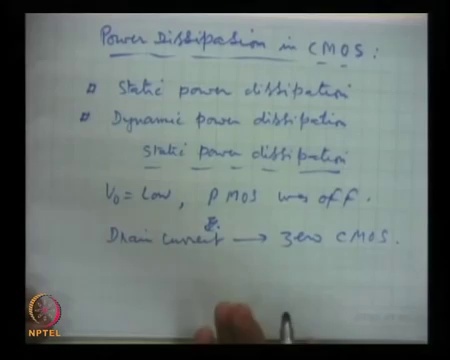 Power Dissipation in CMOS:
Static power dissipation
Dynamic power dissipation
static power dissipation
V₀ = Low, PMOS was off.
Drain current → zero CMOS.
NPTEL